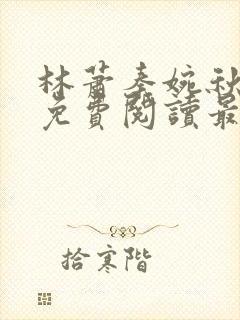 林蕭秦婉秋
免費閱讀最
拾寒階